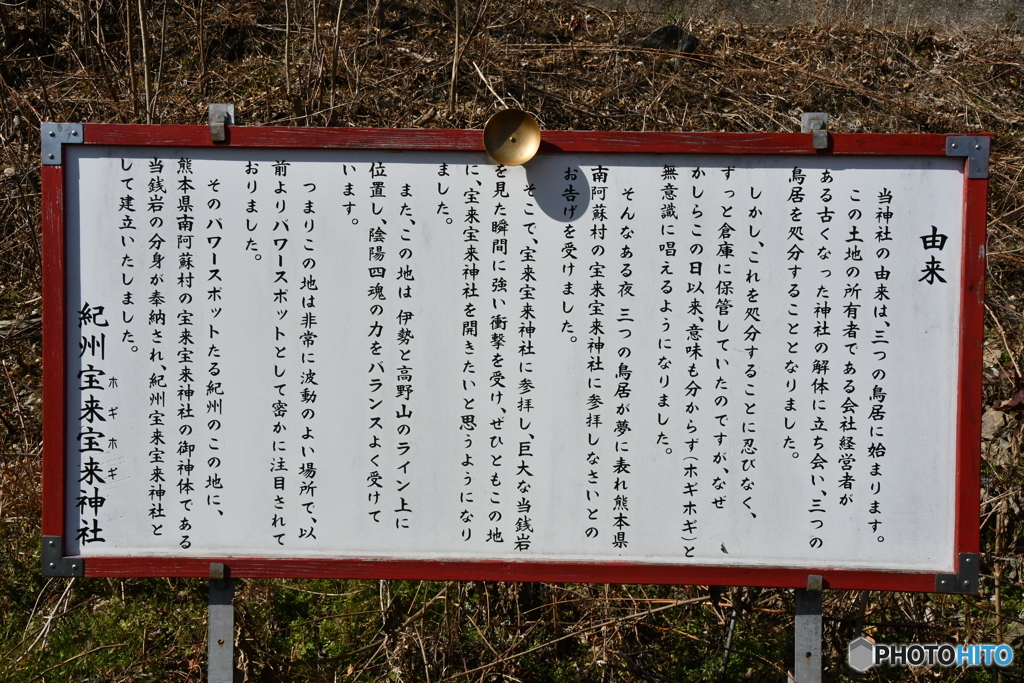 由来
当神社の由来は、三つの鳥居に始まります。
この土地の所有者である会社経営者が
ある古くなった神社の解体に立ち会い、三つの
鳥居を処分することとなりました。
しかし、これを処分することに忍びなく、
ずっと倉庫に保管していたのですが、なぜ
かしらこの日以来、意味も分からず(ホギホギ)と
無意識に唱えるようになりました。
そんなある夜 三つの鳥居が夢に表れ熊本県
南阿蘇村の宝来宝来神社に参拝しなさいとの
お告げを受けました。
そこで、宝来宝来神社に参拝し、巨大な当銭岩
を見た瞬間に強い衝撃を受け、ぜひともこの地
に、宝来宝来神社を開きたいと思うようになり
ました。
また、この地は 伊勢と高野山のライン上に
位置し、陰陽四魂の力をバランスよく受けて
います。
つまりこの地は非常に波動のよい場所で、以
前よりパワースポットとして密かに注目されて
おりました。
そのパワースポットたる紀州のこの地に、
熊本県南阿蘇村の宝来宝来神社の御神体である
当銭岩の分身が奉納され、紀州宝来宝来神社と
して建立いたしました。
ホギホギ
紀州宝来宝来神社
PHOTOHITO